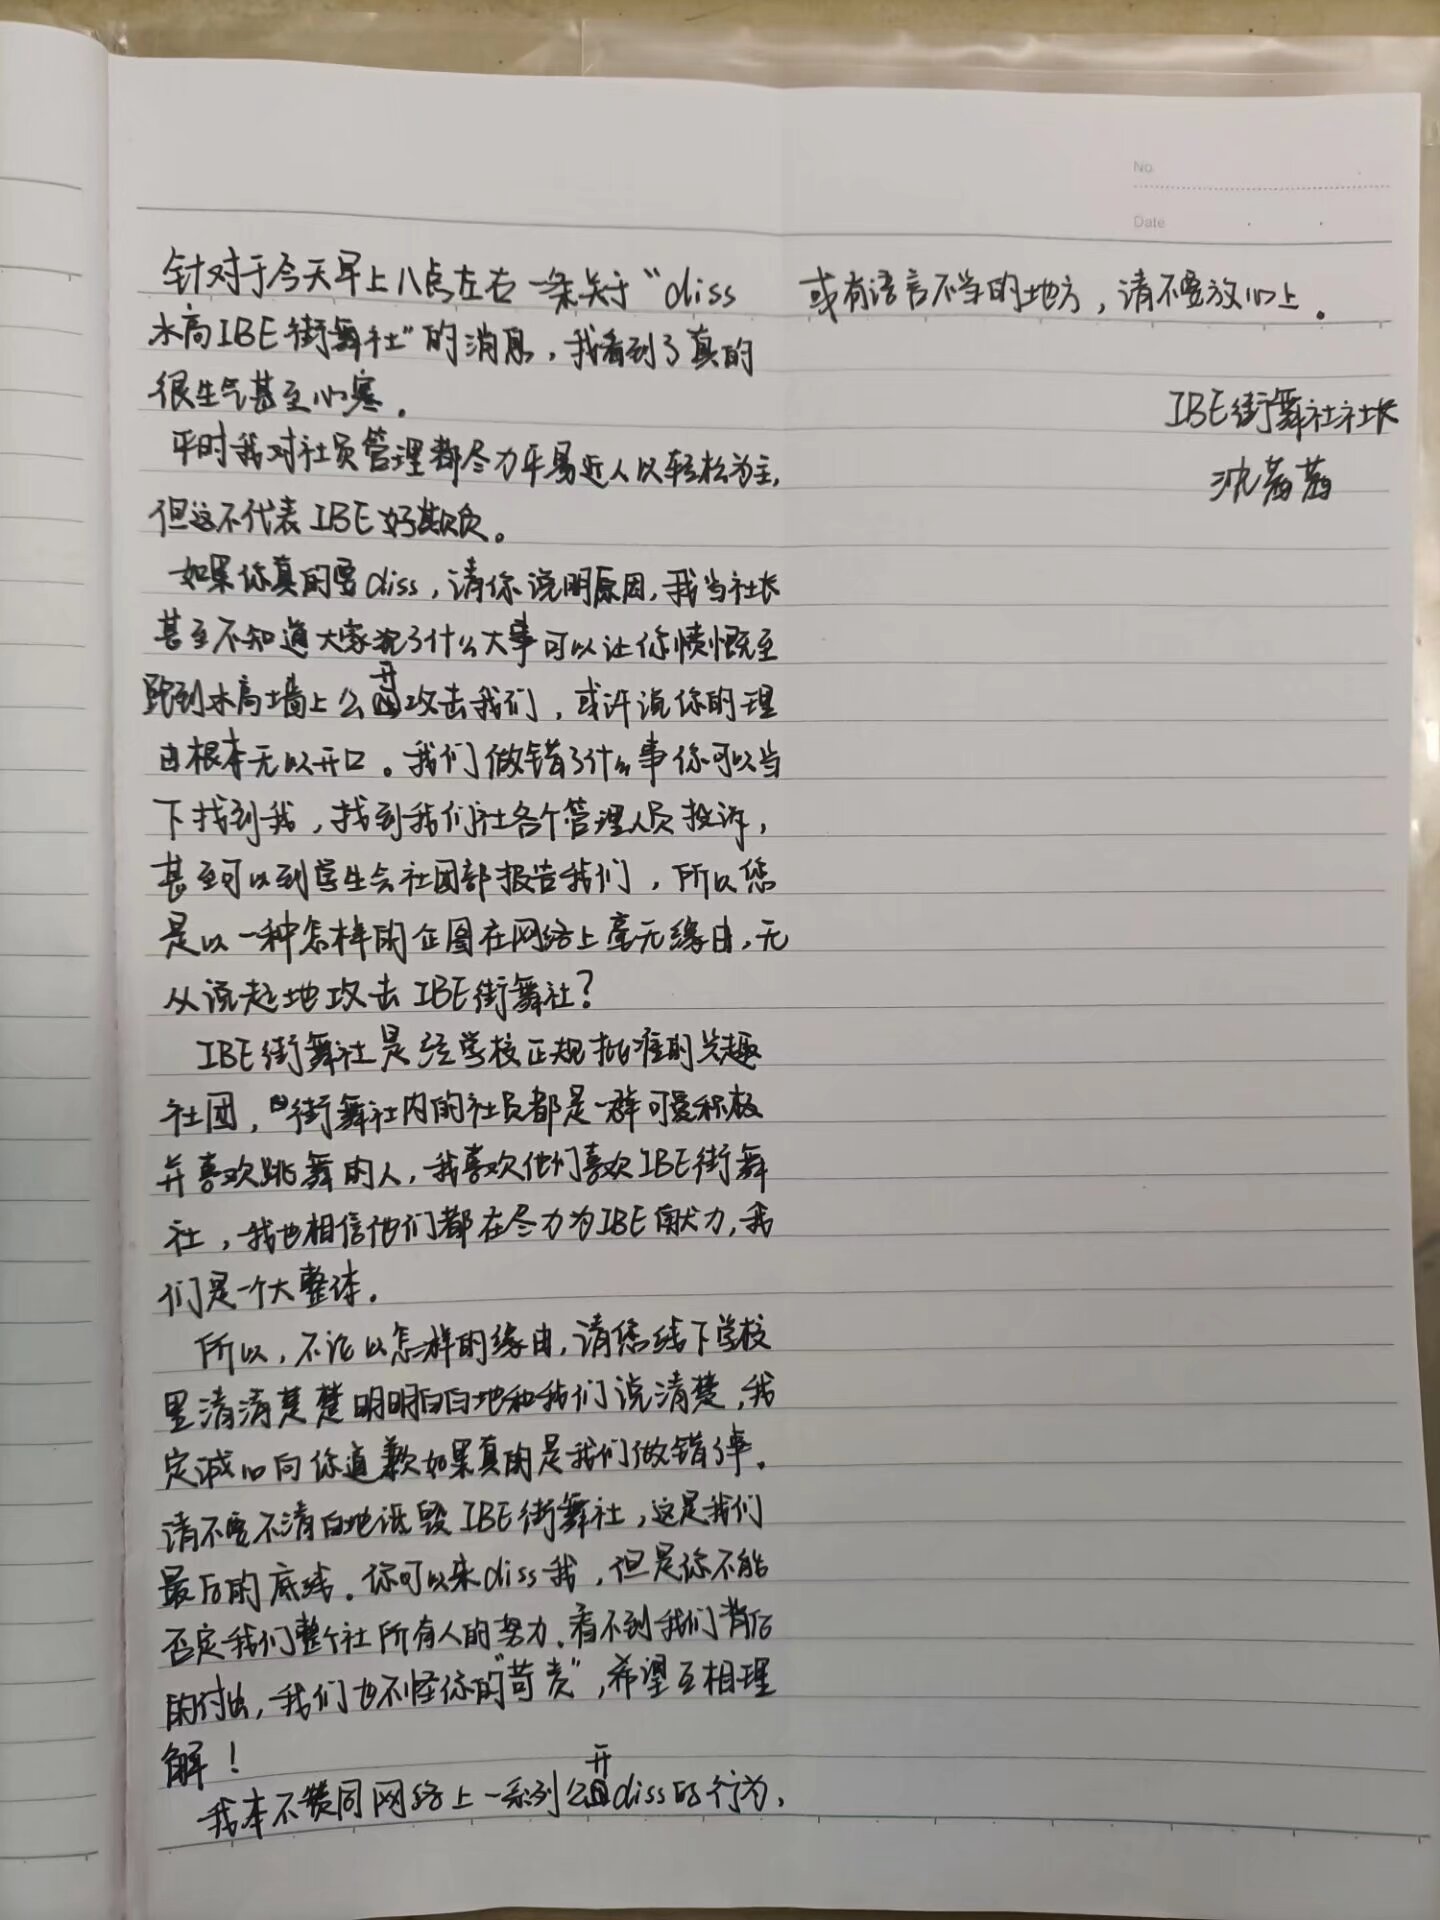 No.
Date
针对于今天早上八点左右一条关于“diss
水高IBE街舞社”的消息，我看到了真的
很生气甚至心寒。
平时我对社员管理都尽力平易近人以轻松为主，
但这不代表IBE好欺负。
如果你真的要diss，请你说明原因，我当社长
甚至不知道大家犯了什么大事可以让你愤慨至
跑到水高墙上公开攻击我们，或许说你的理
由根本无以开口。我们做错了什么事你可以当
下找到我，找到我们社各个管理人员投诉，
甚至可以到学生会社团部报告我们，所以您
是以一种怎样的企图在网络上毫无缘由，无
从说起地攻击IBE街舞社？
IBE街舞社是经学校正规批准的兴趣
社团，街舞社内的社员都是一群可爱积极
并喜欢跳舞的人，我喜欢他们喜欢IBE街舞
社，我也相信他们都在尽力为IBE献力，我
们是一个大整体。
所以，不论以怎样的缘由，请您线下学校
里清清楚楚明明白白地和我们说清楚，我
定诚心向你道歉如果真的是我们做错了事。
请不要不清白地诋毁IBE街舞社，这是我们
最后的底线。你可以来diss我，但是你不能
否定我们整个社所有人的努力。看不到我们背后
的付出，我们也不怪你的“苛责”，希望互相理
解！
我本不赞同网络上一系列公开diss的行为，
或有语言不当的地方，请不要放心上。
IBE街舞社社长
沈